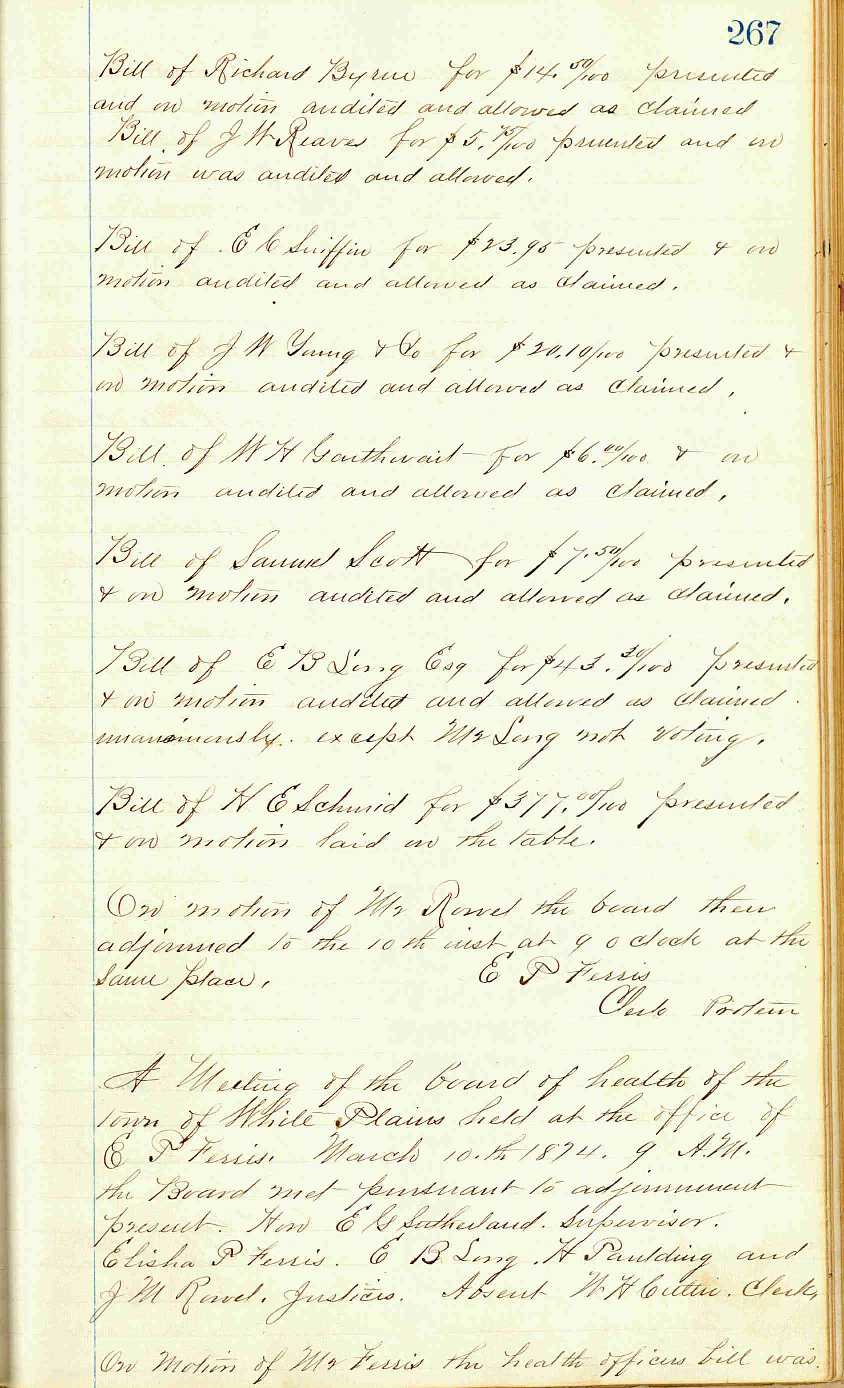 267
Bill of Richard Byrne for $14.50/100 presented
and on motion audited and allowed as claimed
Bill of J W Reaves for $5. /100 presented and on
motion was audited and allowed.
Bill of E C Sniffin for $23.95 presented & on
motion audited and allowed as claimed.
Bill of J W Young & Co for $20.10/100 presented &
on motion audited and allowed as claimed,
Bill of W H Gaithwait for $6.00/100 & on
motion audited and allowed as claimed,
Bill of Samuel Scott for $7.50/100 presented
& on motion audited and allowed as claimed.
Bill of E B Long Esq for $43.30/100 presented
& on motion audited and allowed as claimed.
unanimously. except Mr Long not voting.
Bill of H E Schmid for $377.00/100 presented
& on motion laid on the table.
On motion of Mr Rowel the board then
adjourned to the 10th inst at 9 o clock at the
same place.
E P Ferris
Clerk Protem
A Meeting of the board of health of the
town of White Plains held at the office of
E P Ferris. March 10.th 1874. 9 A.M.
the Board met pursuant to adjournment
present. Hon E G Sutherland. Supervisor.
Elisha P Ferris. E B Long. H Paulding and
J M Rowel. Justices. Absent W H Clerk,
On Motion of Mr Ferris the health officers bill was.